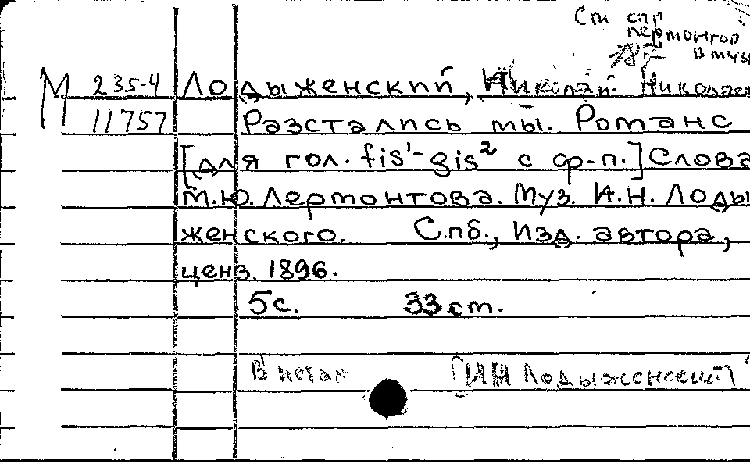 См спр
Лермонтов
в муз
М 235-4 Лодыженский, Николай Николаев
11757 Разстались мы. Романс
[для гол. fis¹-gis² с ф-п.] Слова
М.Ю. Лермонтова. Муз. И.Н. Лоды
женского. С.пб., Изд. автора,
ценз. 1896.
5с. 33 cm.
В нотах [ИН Лодыженский]